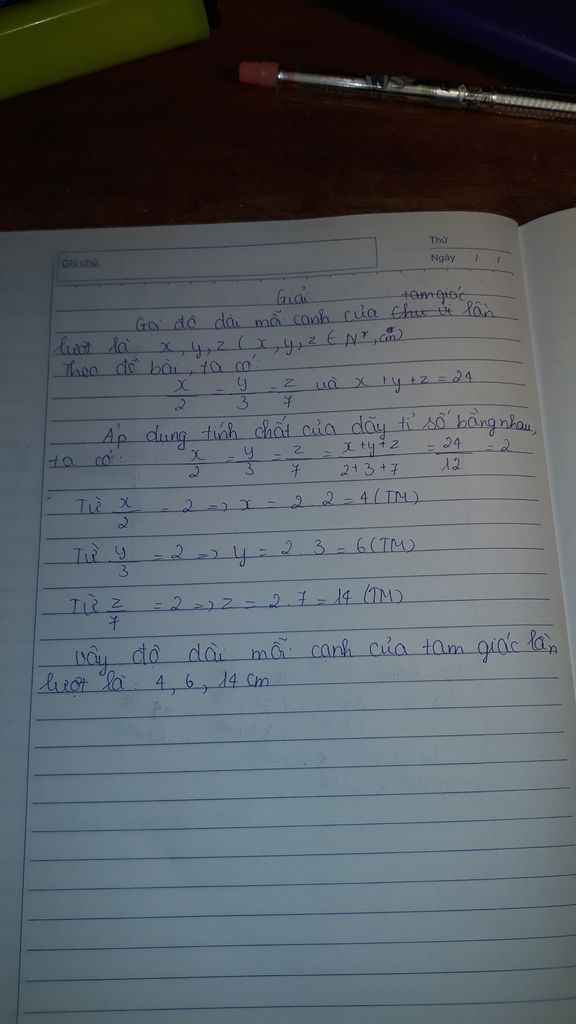 Thứ
Ghi chú:
Ngày / /
Giải
Gọi độ dài mỗi cạnh của chu vi tam giác lần
lượt là: x, y, z (x, y, z ∈ N*, cm)
Theo đề bài, ta có:
x/2 = y/3 = z/7 và x + y + z = 24
Áp dụng tính chất của dãy tỉ số bằng nhau,
ta có: x/2 = y/3 = z/7 = x+y+z/2+3+7 = 24/12 = 2
Từ x/2 = 2 => x = 2.2 = 4 (TM)
Từ y/3 = 2 => y = 2.3 = 6 (TM)
Từ z/7 = 2 => z = 2.7 = 14 (TM)
Vậy độ dài mỗi cạnh của tam giác lần
lượt là: 4, 6, 14 cm